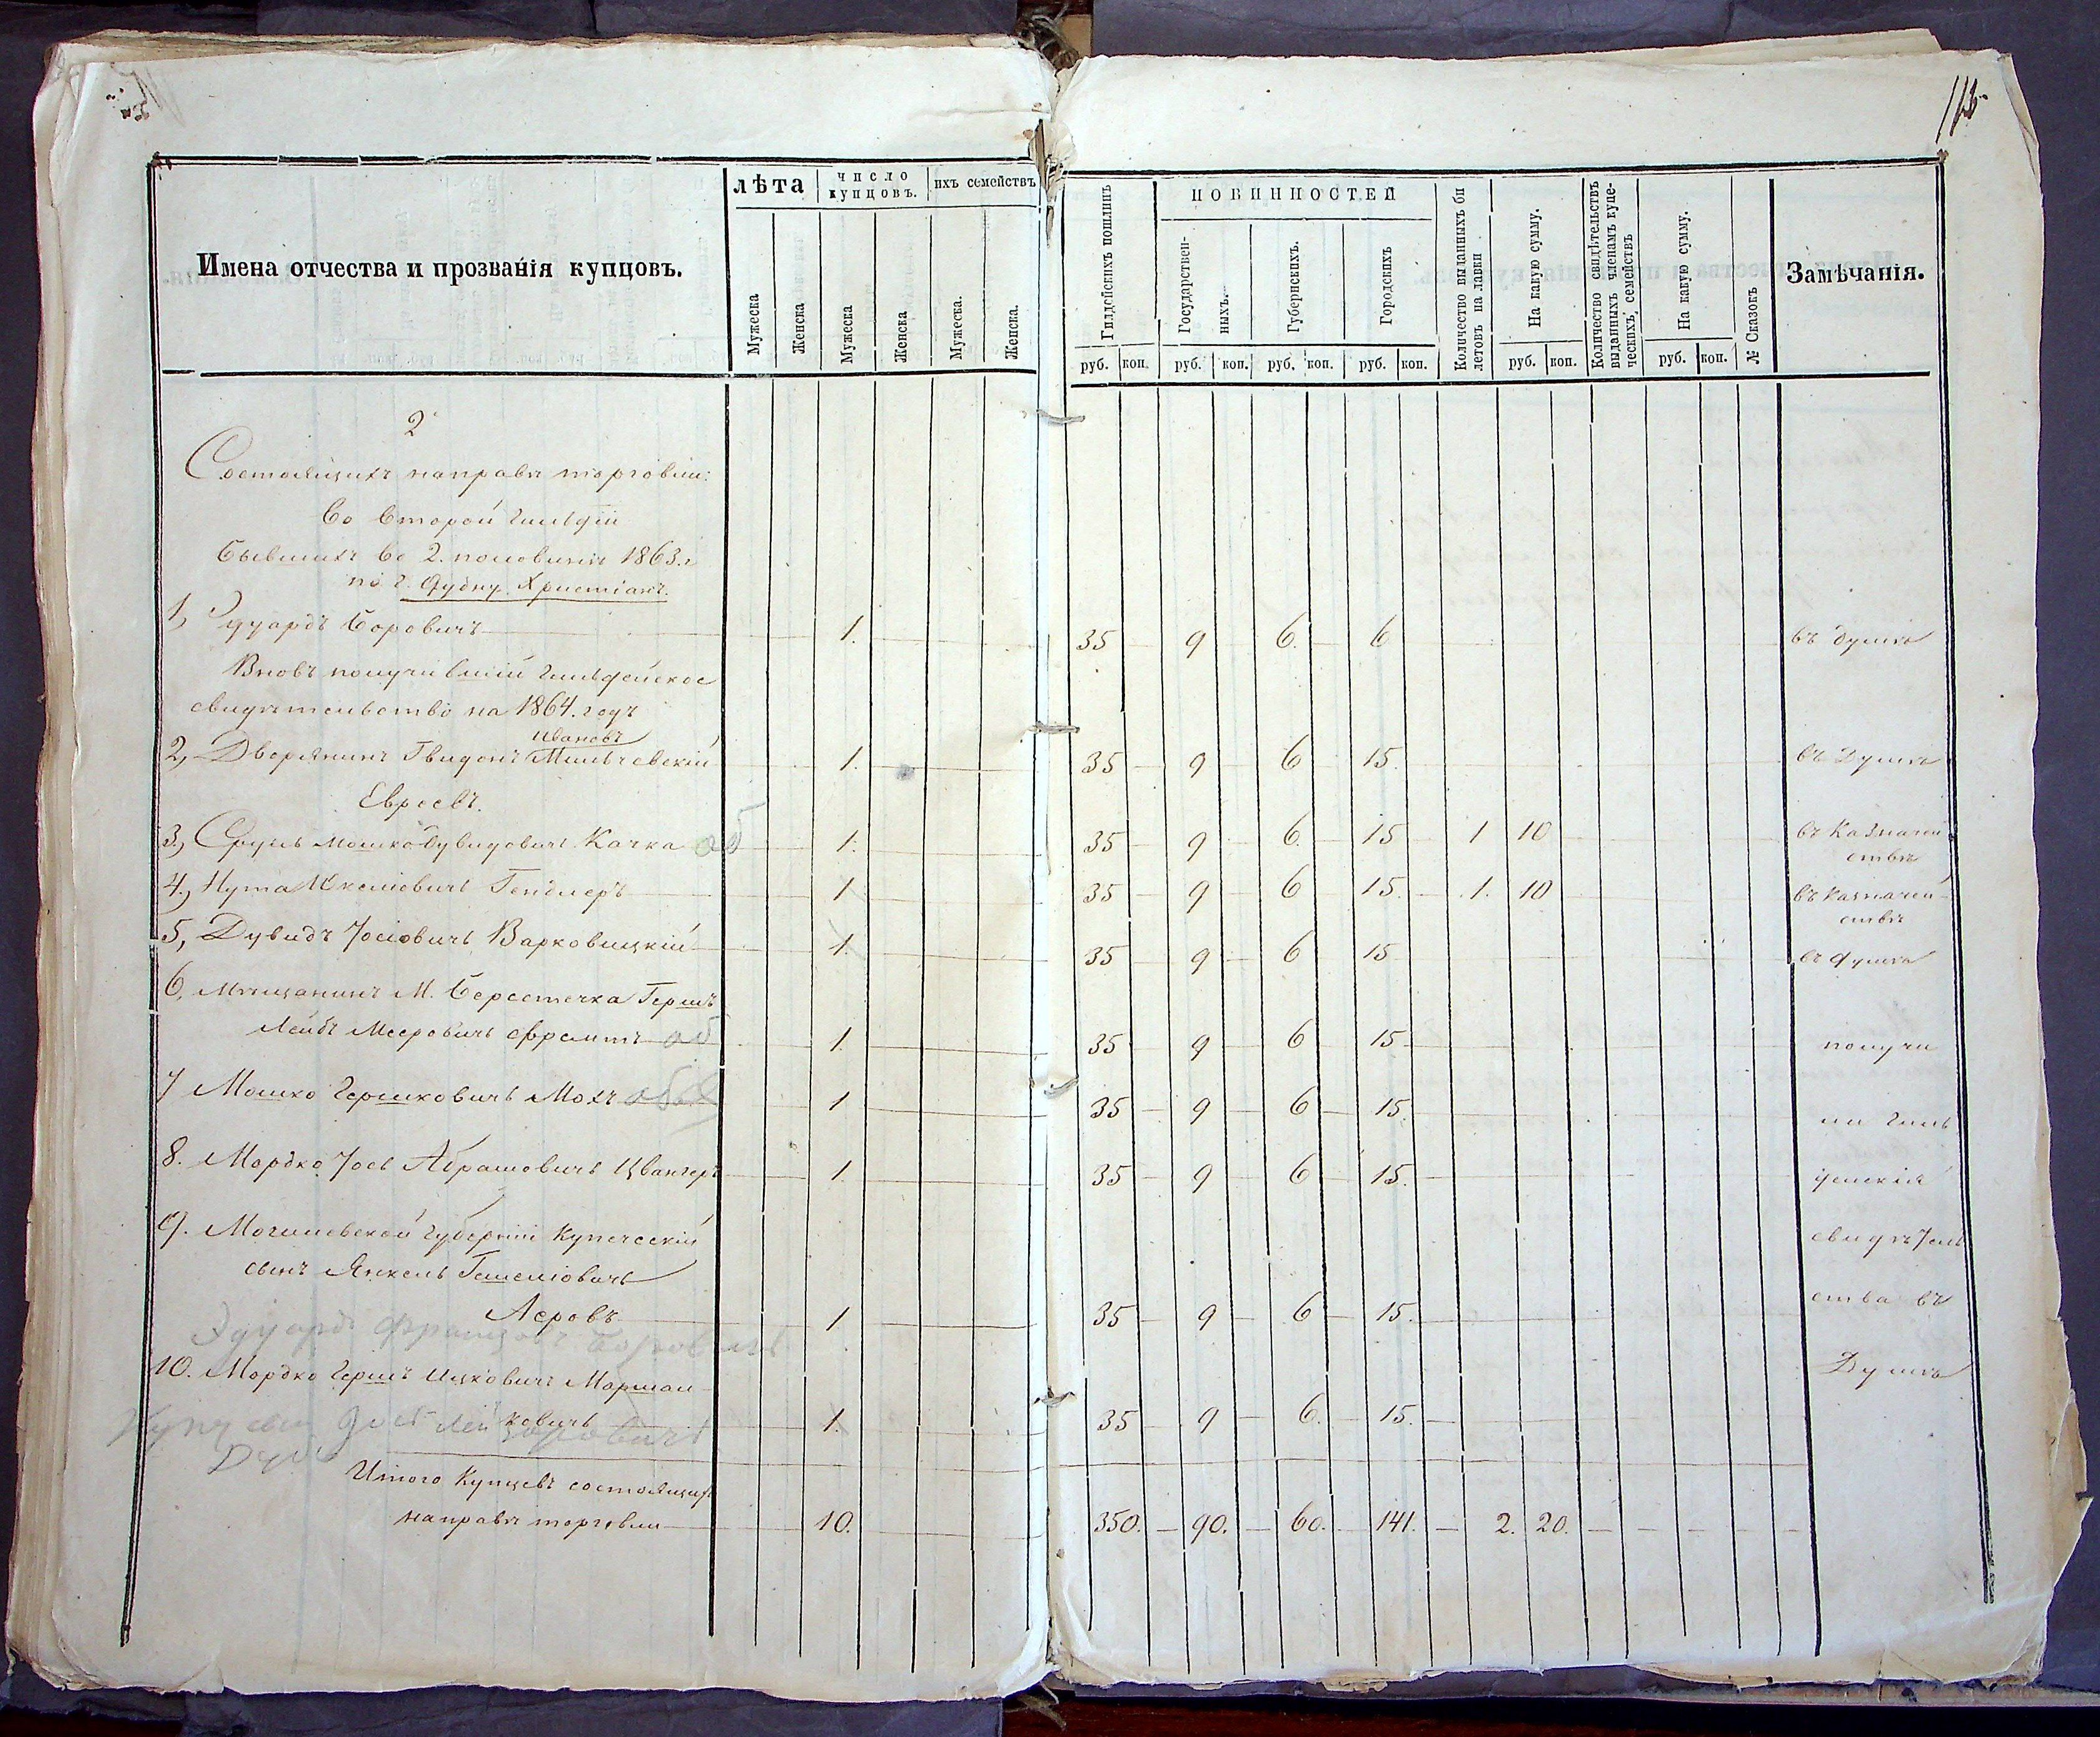 113
Имена отчества и прозванія купцовъ.
лѣта
число купцовъ.
ихъ семействъ
Мужеска
Женска
Мужеска
Женска
Мужеска.
Женска.
Гилдейскихъ пошлинъ
ПОВИННОСТЕЙ
Государственныхъ.
Губернскихъ.
Городскихъ
Количество выданныхъ билетовъ на лавки
На какую сумму.
Количество свидѣтельствъ выданныхъ членамъ купеческихъ, семействъ
На какую сумму.
№ Сказокъ
Замѣчанія.
руб. коп. руб. коп. руб. коп. руб. коп. руб. коп. руб. коп.
2
Состоящихъ направѣ торговли:
Во второй гильдіи
бывшихъ во 2. половинѣ 1863.г
по г. Дубну Христіанъ.
1, Эдуардъ Боровичъ 1. 35 9 6. 6 въ думѣ
Вновъ получившій гильдейское
свидѣтельство на 1864. годъ
Ивановъ
2, Дворянинъ Гвидонъ Мильчевскій 1. 35 9 6 15. въ Думѣ
Евреевъ.
3, Сруль Мошко-Дувидовичь Качка об 1. 35 9 6. 15 1 10 въ Казначей
ствѣ
4, Нута Ихелiовичь Гендлеръ 1 35 9 6 15. 1. 10 въ Казначей
ствѣ
5, Дувидъ Іосіовичь Варковицкій 1. 35 9 6 15 въ Думѣ
6, Мѣщанинъ М. Берестечка Гершъ
Лейбъ Мееровичь Эфраимъ об 1 35 9 6 15. получи
7 Мошко Гершковичь Мохъ 1 35 9 6 15. ли гиль
8. Мордко Іось Абрамовичь Цвангеръ 1. 35 9 6 15. дейскія
9. Могилевской Губерніи Купеческій свидѣтель
сынъ Янкель
Леровъ 1 35 9 6 15. ства въ
Эдуардъ Францовъ Боровичъ
10. Мордко Гершъ Ицковичъ Маршал Думѣ
ковичь 1. 35 9 6. 15.
Итого Купцевъ состоящих
направѣ торговли 10. 350. 90. 60. 141. 2. 20.